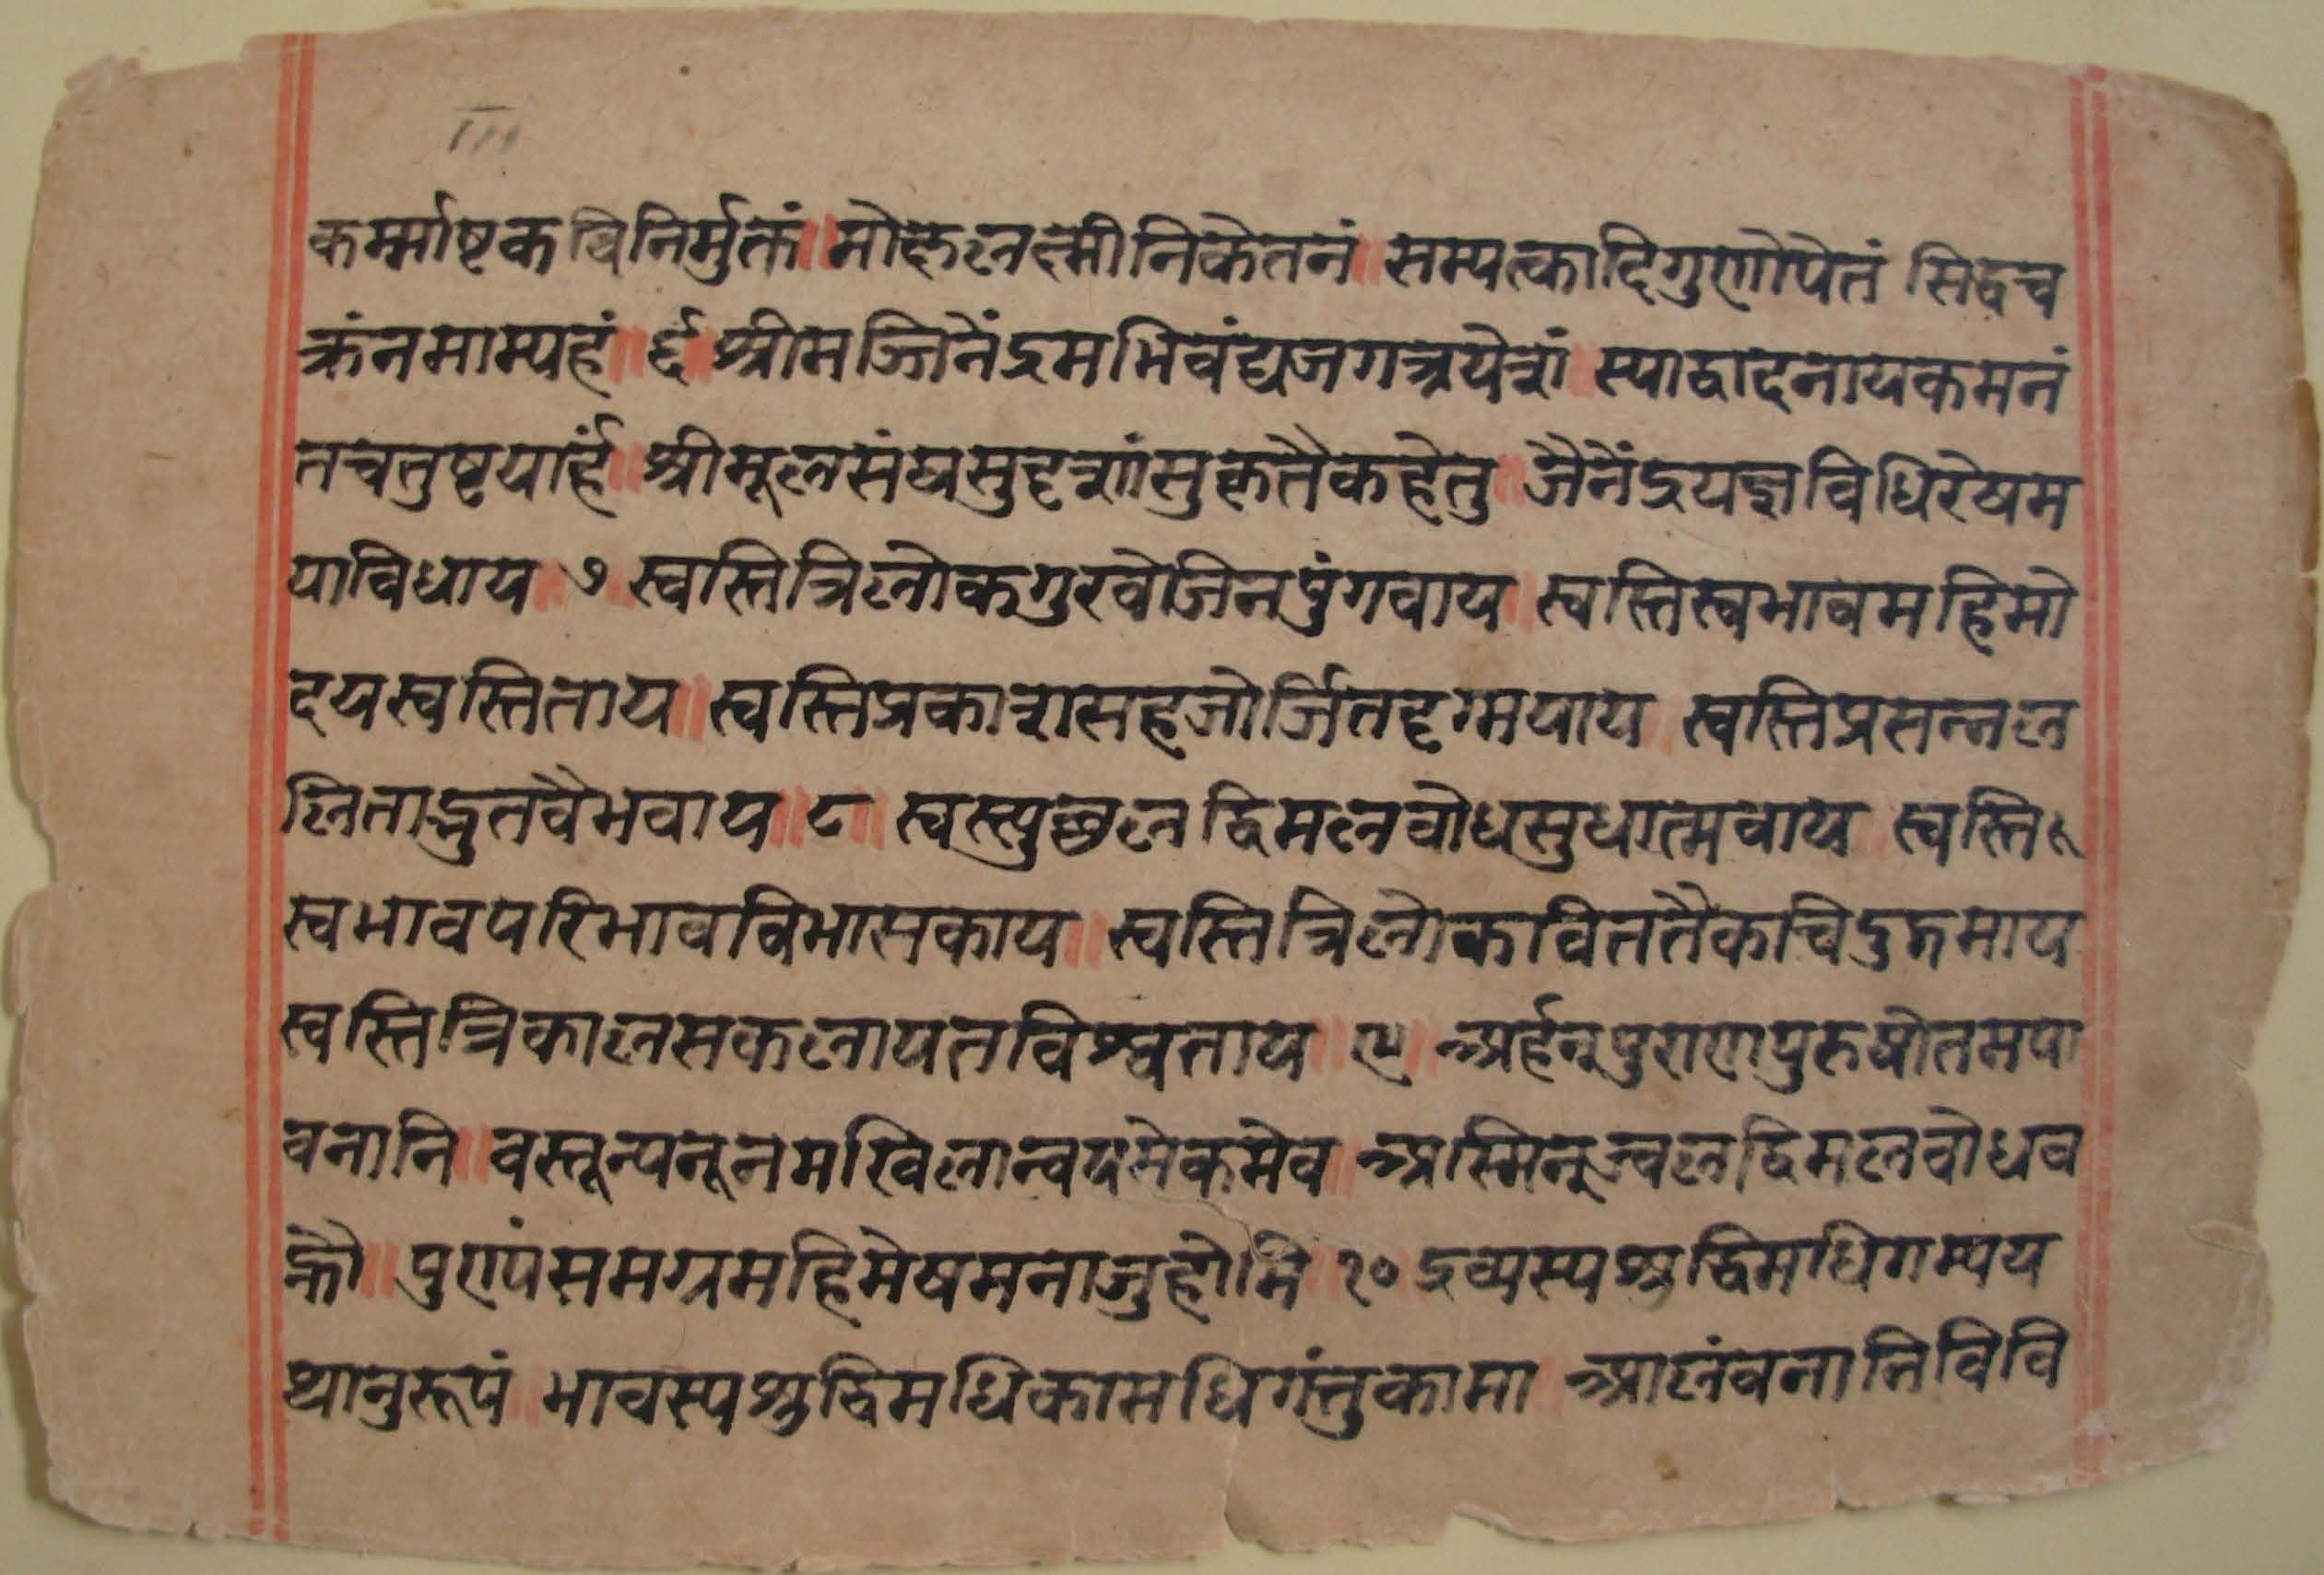 कर्म्माष्टकविनिर्मुक्तं॥मोक्षलक्ष्मीनिकेतनं॥सम्यक्त्कादिगुणोपेतं सिद्धच
क्रंनमाम्यहं॥६॥श्रीमज्जिनेंद्रमभिवंद्यजगत्रयेशं।स्याद्वादनायकमनं
तचतुष्टयार्हं॥श्रीमूलसंघसुदृशांसुकृतैकहेतु॥जैनेंद्रयज्ञविधिरेषम
याविधाय॥७॥स्वस्तित्रिलोकगुरवेजिनपुंगवाय।स्वस्तिस्वभावमहिमो
दयस्वस्तिताय॥स्वस्तिप्रकाशसहजोर्जितदृग्मयाय।स्वस्तिप्रसन्नल
लिताद्भुतवैभवाय॥८॥स्वस्त्युछलद्विमलवोधसुधात्मवाय।स्वस्ति
स्वभावपरिभावविभासकाय॥स्वस्तित्रिलोकविततैकचिदुद्गमाय
स्वस्तित्रिकालसकलायतविश्वताय॥९॥अर्हन्पुराणपुरुषोतमपा
वनानि॥वस्तून्यनूनमखिलान्वयमेकमेव॥अस्मिन्ज्वलद्विमलवोधव
ह्नौ॥पुण्यंसमग्रमहिमेषमनाजुहोमि॥१०॥द्रव्यस्यशुद्धिमधिगम्यय
थानुरूपं॥भावस्यशुद्धिमधिकामधिगंतुकामा॥आलंवनानिविवि